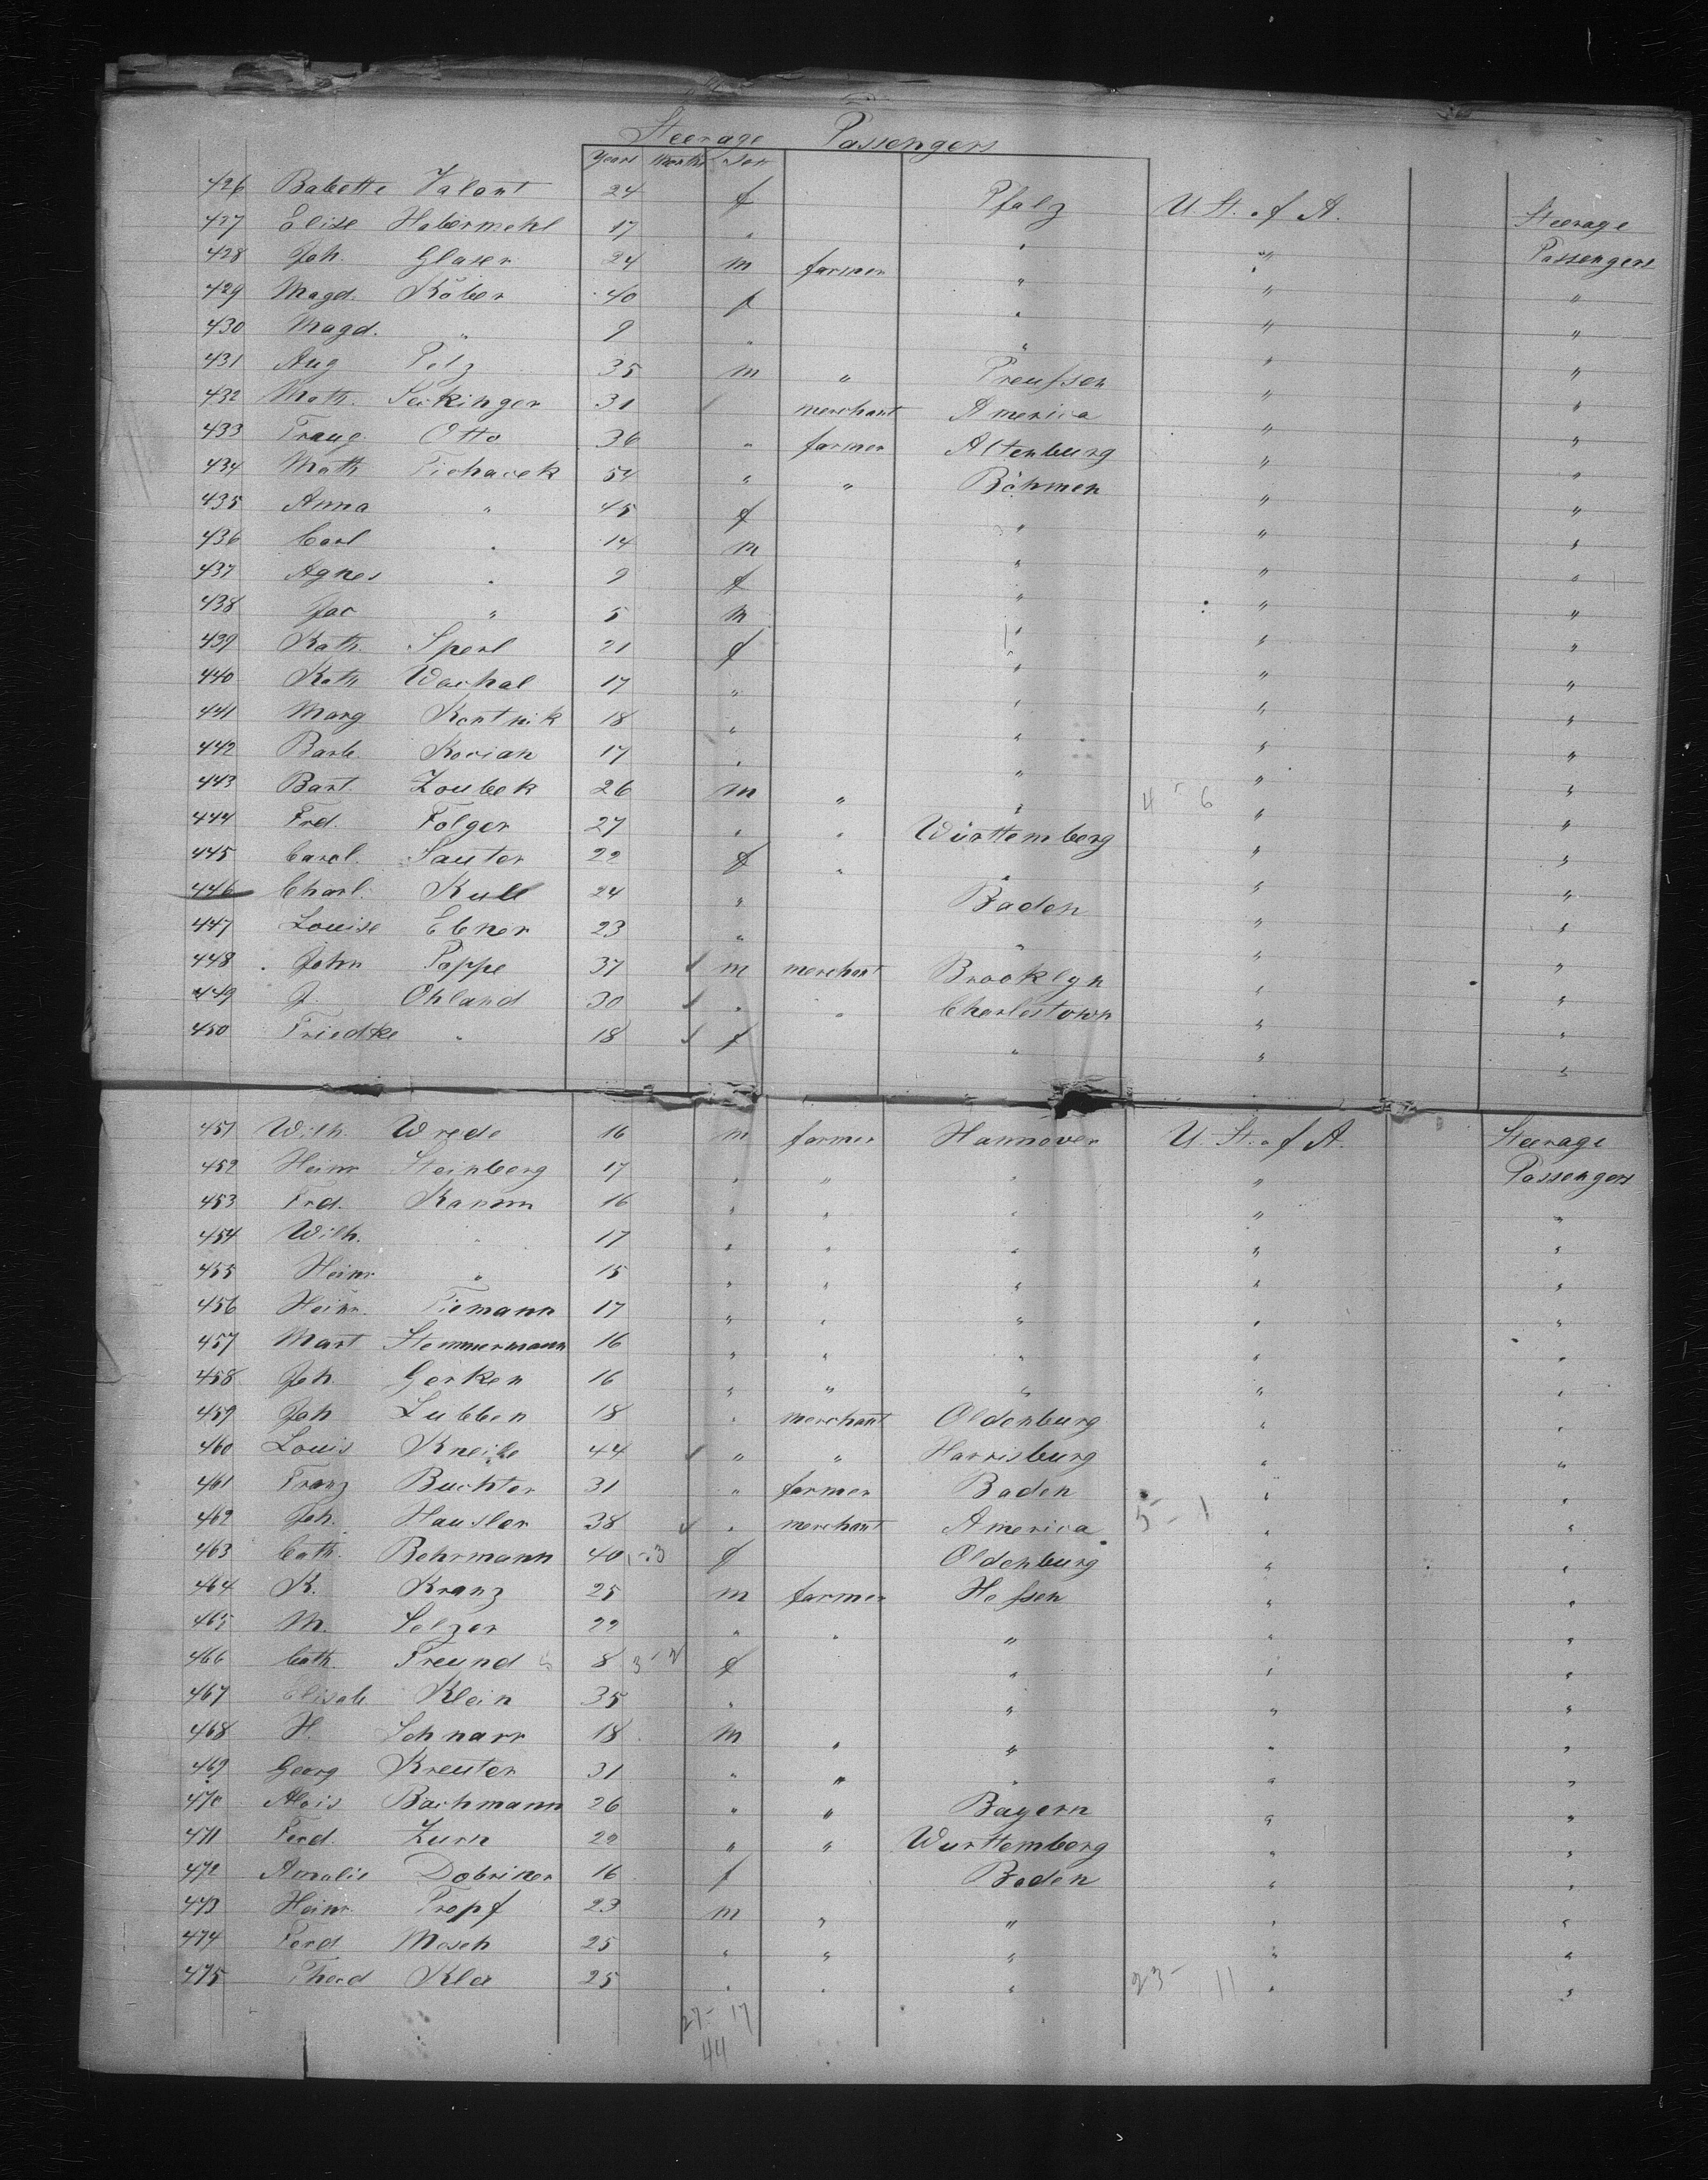 Steerage Passengers
Years Months Sex
426 Babette Valant 24 f Pfalz U. St. of A. Steerage
427 Elise Habermehl 17 " " " Passengers
428 Joh. Glaser 24 m farmer " " "
429 Magd. Köber 40 f " " "
430 Magd. " 9 " " " "
431 Aug Pelz 35 m " Preußen " "
432 Math. Seckinger 31 merchant America " "
433 Traug. Otto 36 " farmer Altenburg " "
434 Math Tichacek 54 " " Böhmen " "
435 Anna " 45 f " " "
436 Carl " 14 m " " "
437 Agnes " 9 f " " "
438 Jac " 5 m " " "
439 Kath. Sperl 21 f " " "
440 Kath Wachal 17 " " " "
441 Marg Kontnik 18 " " " "
442 Barb Korian 17 " " " "
443 Bart. Zoubek 26 m " " 4 - 6 " "
444 Frd. Folger 27 " " Württemberg " "
445 Carol. Sauter 22 f " " " "
446 Charl. Kull 24 " Baden " "
447 Louise Ebner 23 " " " "
448 John Poppe 37 m merchant Brooklyn " "
449 J. Ohland 30 " " Charlestown " "
450 Friedke " 18 f " " "
451 Wilh. Wrede 16 m farmer Hannover U. St. of A. Steerage
452 Heinr Steinberg 17 " " " " Passengers
453 Frd. Ramm 16 " " " " "
454 Wilh. " 17 " " " " "
455 Heinr " 15 " " " " "
456 Heinr. Tiemann 17 " " " " "
457 Mart Stemmermann 16 " " " " "
458 Joh. Gerken 16 " " " " "
459 Joh Lubben 18 " merchant Oldenburg " "
460 Louis 44 " " Harrisburg " "
461 Franz Buchter 31 " farmer Baden " "
462 Joh. Hausler 38 " merchant America 5 - 1 " "
463 Cath. Behrmann 40 1-3 f Oldenburg " "
464 K. Kranz 25 m farmer Heßen " "
465 M. Selzer 22 " " " " "
466 Cath. Freund 8 3-2 f " " "
467 Elisab Klein 35 " " " "
468 H. Schnarr 18 m " " " "
469 Georg Kreuter 31 " " " " "
470 Alois Bachmann 26 " " Bayern " "
471 Ferd. Zurn 22 " " Wurttemberg " "
472 Amalie Dobriner 16 f Baden " "
473 Heinr. Tropf 23 m " " " "
474 Ferd Mosch 25 " " " " "
475 Theod 25 " " " 23 - 11 " "
27 - 17
44